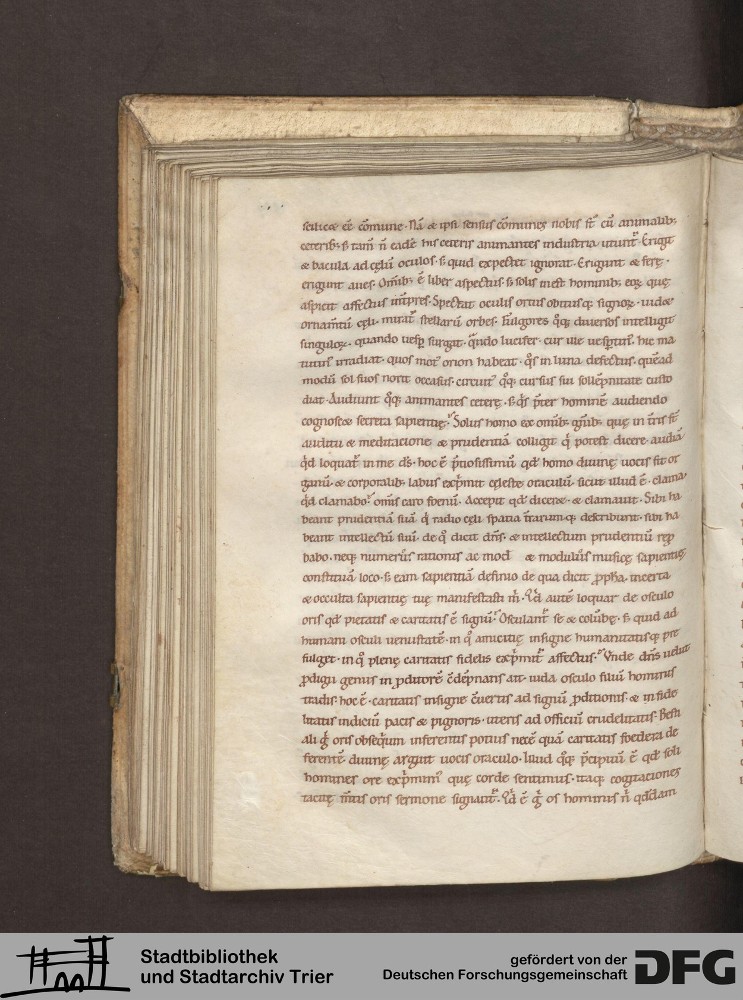 scilicet eē cōmune. Nā & ipsi sensus cōmunes nobis st̄ cū animalib;
ceterib; s; tam̄ n̄ eadē his ceteris animantes industria utunt̄. Erigit
& bacula ad cęlū oculos. s; quid expectet ignorat. Erigunt & ferę.
erigunt aues. Omib; ē liber aspectus. s; solis inest hominib; eoꝝ quę
aspicit affectus īnt̄pres. Spectat oculis ortus obitusq; signoꝝ. uidet
ornam̄tū cęli. mirat̄ stellarū orbes. Fulgores q̊q; diuersos intelligit
singuloꝝ. quando uesp̄ surgit. q̄ndo lucifer. cur ille uesp̄tin'. hic ma
tutin' irradiat. quos mot' orion habeat. q̊s in luna defect'. quēad
modū sol suos norit occasus. circuit' q̊q; cursus sui sollēpnitate custo
diat. Audiunt q̊q; animantes ceterę. s; q̊s p̄ter hominē audiendo
cognoscit secreta sapientię. Solus homo ex omib; quę in t̄ris st̄
auditu & meditacione & prudentia colligit q̊ potest dicere. audiā
q̊d loquat̄ in me d̄s. hoc ē p̄tiosissimū qd̄ homo diuinę uocis fit or
ganū. & corporalib; labiis exp̄mit cęleste oraculū. sicut illud ē. clama.
q̊d clamabo. om̄is caro foenū. Accepit qd̄ diceret & clamauit. Sibi ha
beant prudentiā suā q̊ radio cęli spatia t̄rarumq; describunt. sibi ha
beant intellectū suū. de q̊ dicit dn̄s. & intellectum prudentiū rep̄
babo. neq; numerus rationis ac mod & modulus musicę sapientię
constituā loco. s; eam sapientiā definio de qua dicit p̄pha. incerta
& occulta sapientię tuę manifestasti m̄. Qd̄ autē loquar de osculo
oris qd̄ pietatis & caritatis ē signū. Osculant̄ se & colūbę. s; quid ad
humani osculi uenustatē. in q̊ amicitię insigne humanitatisq; pre
fulget. in q̊ plenę caritatis fidelis exp̄mit̄ affectus. Vnde dn̄s uelut
p̄digii genus in p̄ditorē c̄dēpnans ait. iuda osculo filiū hominis
tradis. hoc ē. caritatis insigne c̄uertis ad signū p̄ditionis. & in fide
litatis indiciū pacis & pignoris. uteris ad officiū crudelitatis. Besti
ali g̊ oris obseq̄um inferentis potius necē quā caritatis foedera de
ferentē diuinę arguit uocis oraculo. Illud q̊q; p̄cipuū ē qd̄ soli
homines ore exp̄mim' quę corde sentimus. itaq; cogitaciones
tacitę m̄tis oris sermone signant̄. Qd̄ ē g̊ os hominis n̄ q̊ddam
Stadtbibliothek
und Stadtarchiv Trier
gefördert von der
Deutschen Forschungsgemeinschaft
DFG